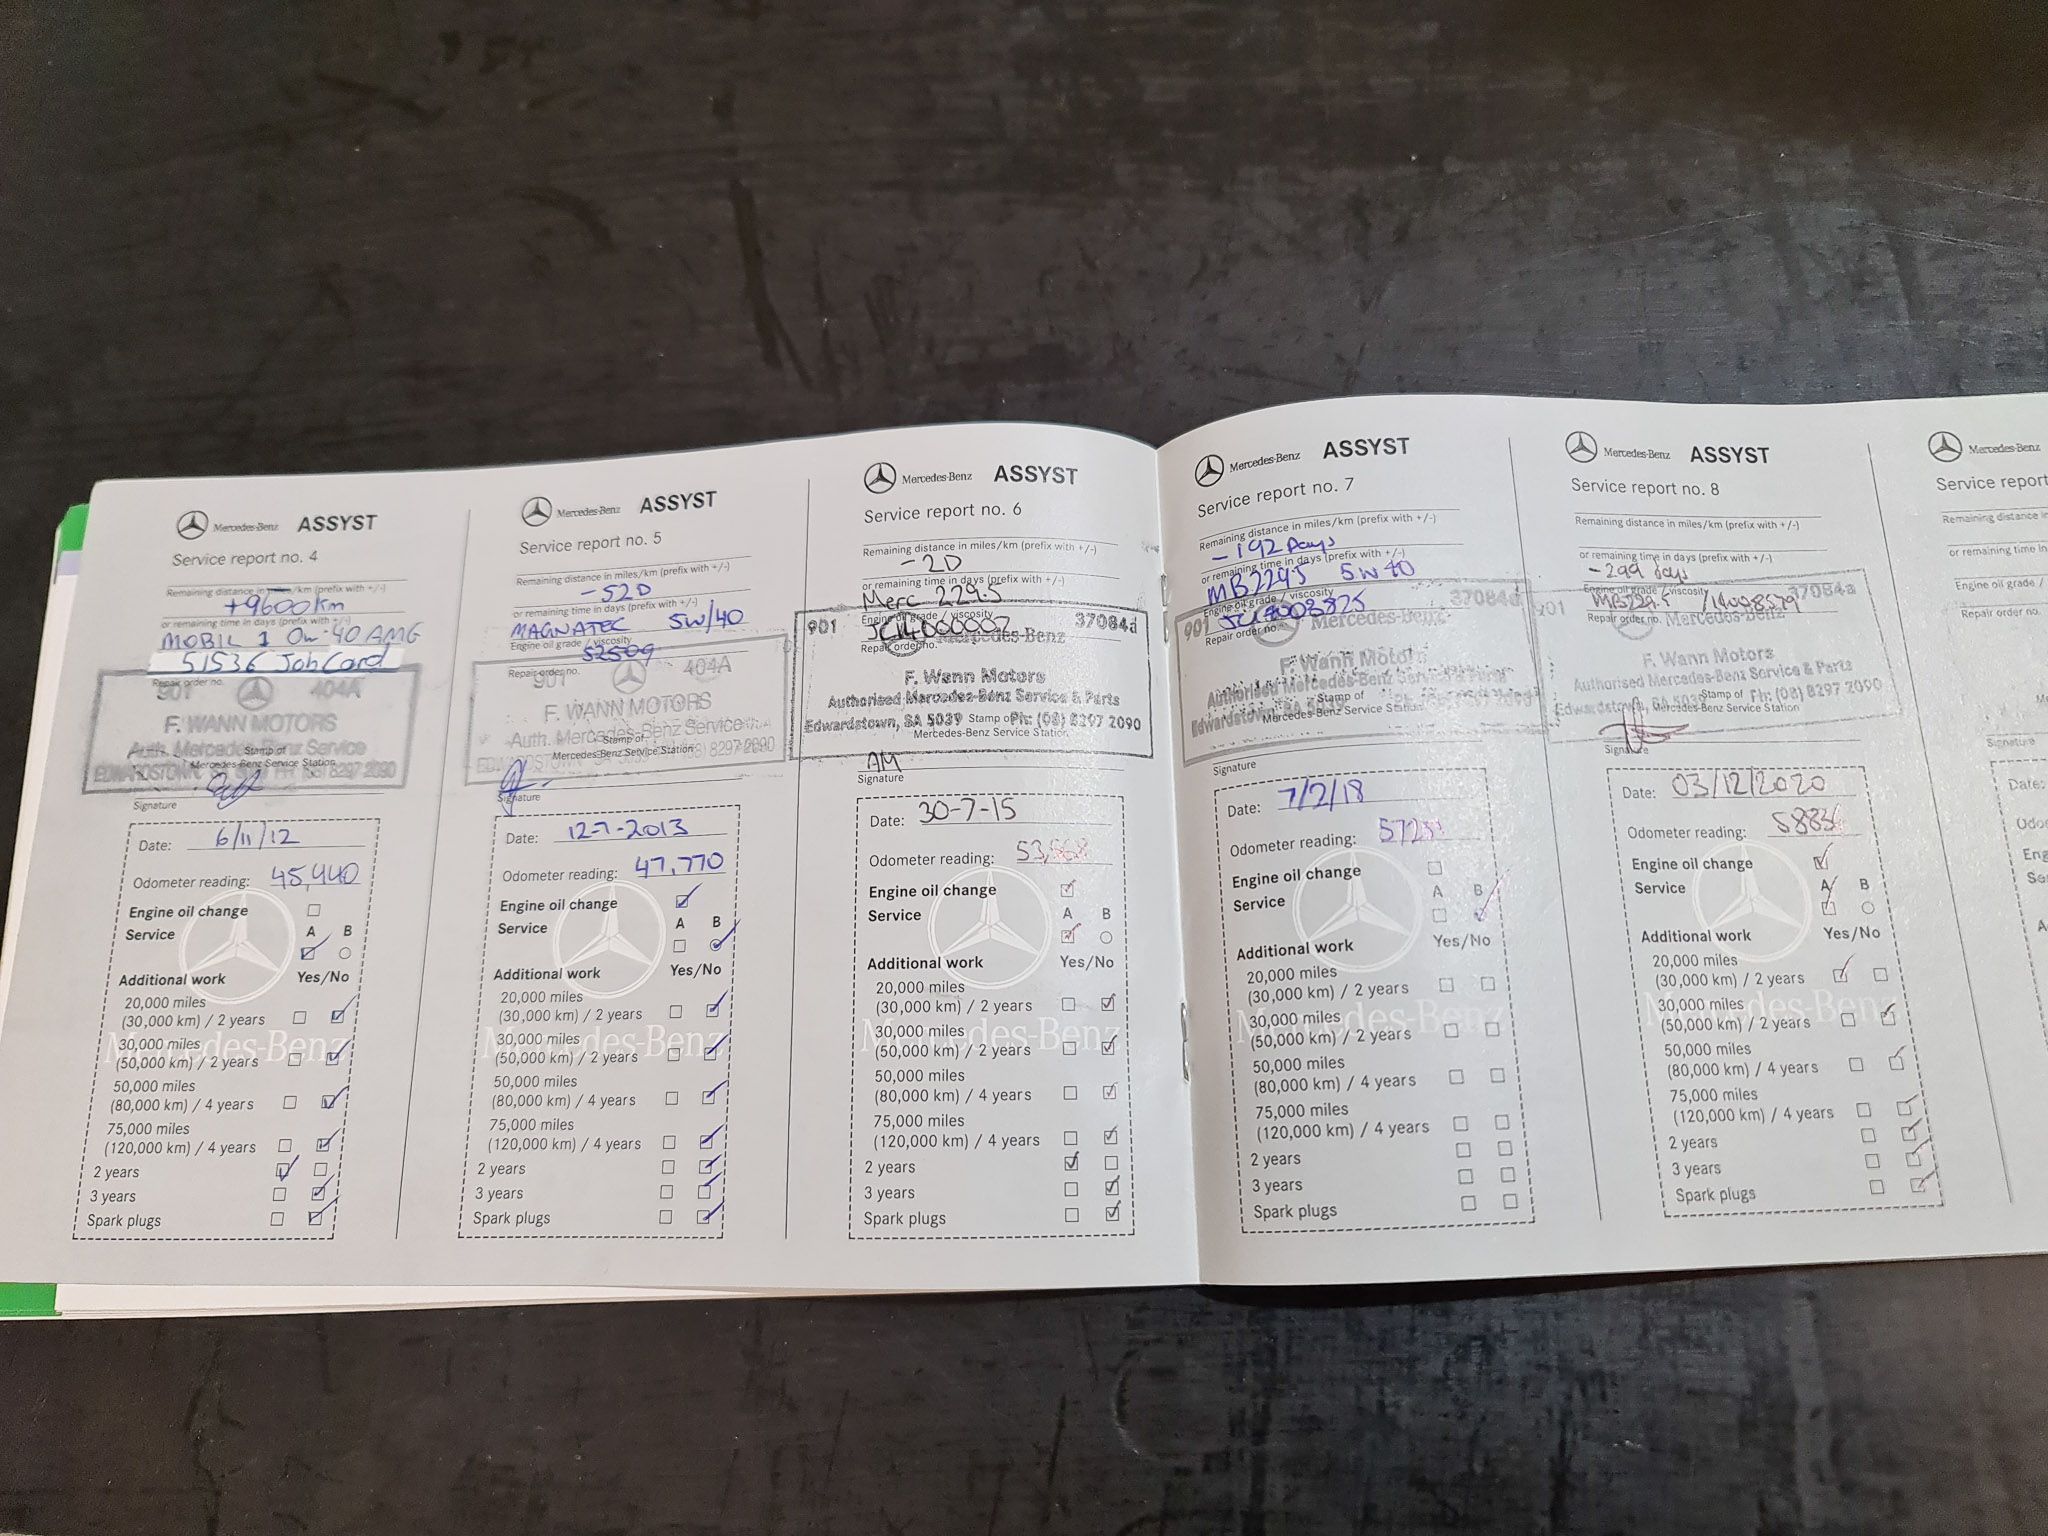 Mercedes-Benz ASSYST
Service report no. 4
Remaining distance in miles/km (prefix with +/-)
+9600km
or remaining time in days (prefix with +/-)
MOBIL 1 0w-40 AMG
51536 Job Card
Repair order no.
901 404A
F. WANN MOTORS
Auth. Mercedes-Benz Service
Stamp of
Mercedes-Benz Service Station
EDWARDSTOWN 8297 2090
Signature
Date: 6/11/12
Odometer reading: 45,940
Engine oil change
Service A B
Additional work Yes/No
20,000 miles
(30,000 km) / 2 years
30,000 miles
(50,000 km) / 2 years
50,000 miles
(80,000 km) / 4 years
75,000 miles
(120,000 km) / 4 years
2 years
3 years
Spark plugs
Mercedes-Benz
Mercedes-Benz ASSYST
Service report no. 5
Remaining distance in miles/km (prefix with +/-)
-52D
or remaining time in days (prefix with +/-)
MAGNATEC 5W/40
Engine oil grade / viscosity
52509
Repair order no.
901 404A
F. WANN MOTORS
Auth. Mercedes-Benz Service
Stamp of
Mercedes-Benz Service Station
8297 2090
Signature
Date: 12-7-2013
Odometer reading: 47,770
Engine oil change
Service A B
Additional work Yes/No
20,000 miles
(30,000 km) / 2 years
30,000 miles
(50,000 km) / 2 years
50,000 miles
(80,000 km) / 4 years
75,000 miles
(120,000 km) / 4 years
2 years
3 years
Spark plugs
Mercedes-Benz
Mercedes-Benz ASSYST
Service report no. 6
Remaining distance in miles/km (prefix with +/-)
-2D
or remaining time in days (prefix with +/-)
Merc 229.5
Engine oil grade / viscosity
Repair order no.
901 Mercedes-Benz 37084a
F. Wann Motors
Authorised Mercedes-Benz Service & Parts
Edwardstown, SA 5039 Ph: (08) 8297 2090
Stamp of
Mercedes-Benz Service Station
AM
Signature
Date: 30-7-15
Odometer reading:
Engine oil change
Service A B
Additional work Yes/No
20,000 miles
(30,000 km) / 2 years
30,000 miles
(50,000 km) / 2 years
50,000 miles
(80,000 km) / 4 years
75,000 miles
(120,000 km) / 4 years
2 years
3 years
Spark plugs
Mercedes-Benz
Mercedes-Benz ASSYST
Service report no. 7
Remaining distance in miles/km (prefix with +/-)
-192 Days
or remaining time in days (prefix with +/-)
MB229.5 5W40
Engine oil grade / viscosity
Repair order no.
901 Mercedes-Benz 37084a
F. Wann Motors
Authorised Mercedes-Benz Service & Parts
Edwardstown, SA 5039
Stamp of
Mercedes-Benz Service Station
Signature
Date: 7/2/18
Odometer reading:
Engine oil change
Service A B
Additional work Yes/No
20,000 miles
(30,000 km) / 2 years
30,000 miles
(50,000 km) / 2 years
50,000 miles
(80,000 km) / 4 years
75,000 miles
(120,000 km) / 4 years
2 years
3 years
Spark plugs
Mercedes-Benz
Mercedes-Benz ASSYST
Service report no. 8
Remaining distance in miles/km (prefix with +/-)
or remaining time in days (prefix with +/-)
-299 days
Engine oil grade / viscosity
MB229.5 / 14008579
Repair order no.
901 Mercedes-Benz 37084a
F. Wann Motors
Authorised Mercedes-Benz Service & Parts
Stamp of Ph: (08) 8297 2090
Mercedes-Benz Service Station
Signature
Date: 03/12/2020
Odometer reading:
Engine oil change
Service A B
Additional work Yes/No
20,000 miles
(30,000 km) / 2 years
30,000 miles
(50,000 km) / 2 years
50,000 miles
(80,000 km) / 4 years
75,000 miles
(120,000 km) / 4 years
2 years
3 years
Spark plugs
Mercedes-Benz
Mercedes-Benz
Service report
Remaining distance in
or remaining time in
Engine oil grade /
Repair order no.
Signature
Date: